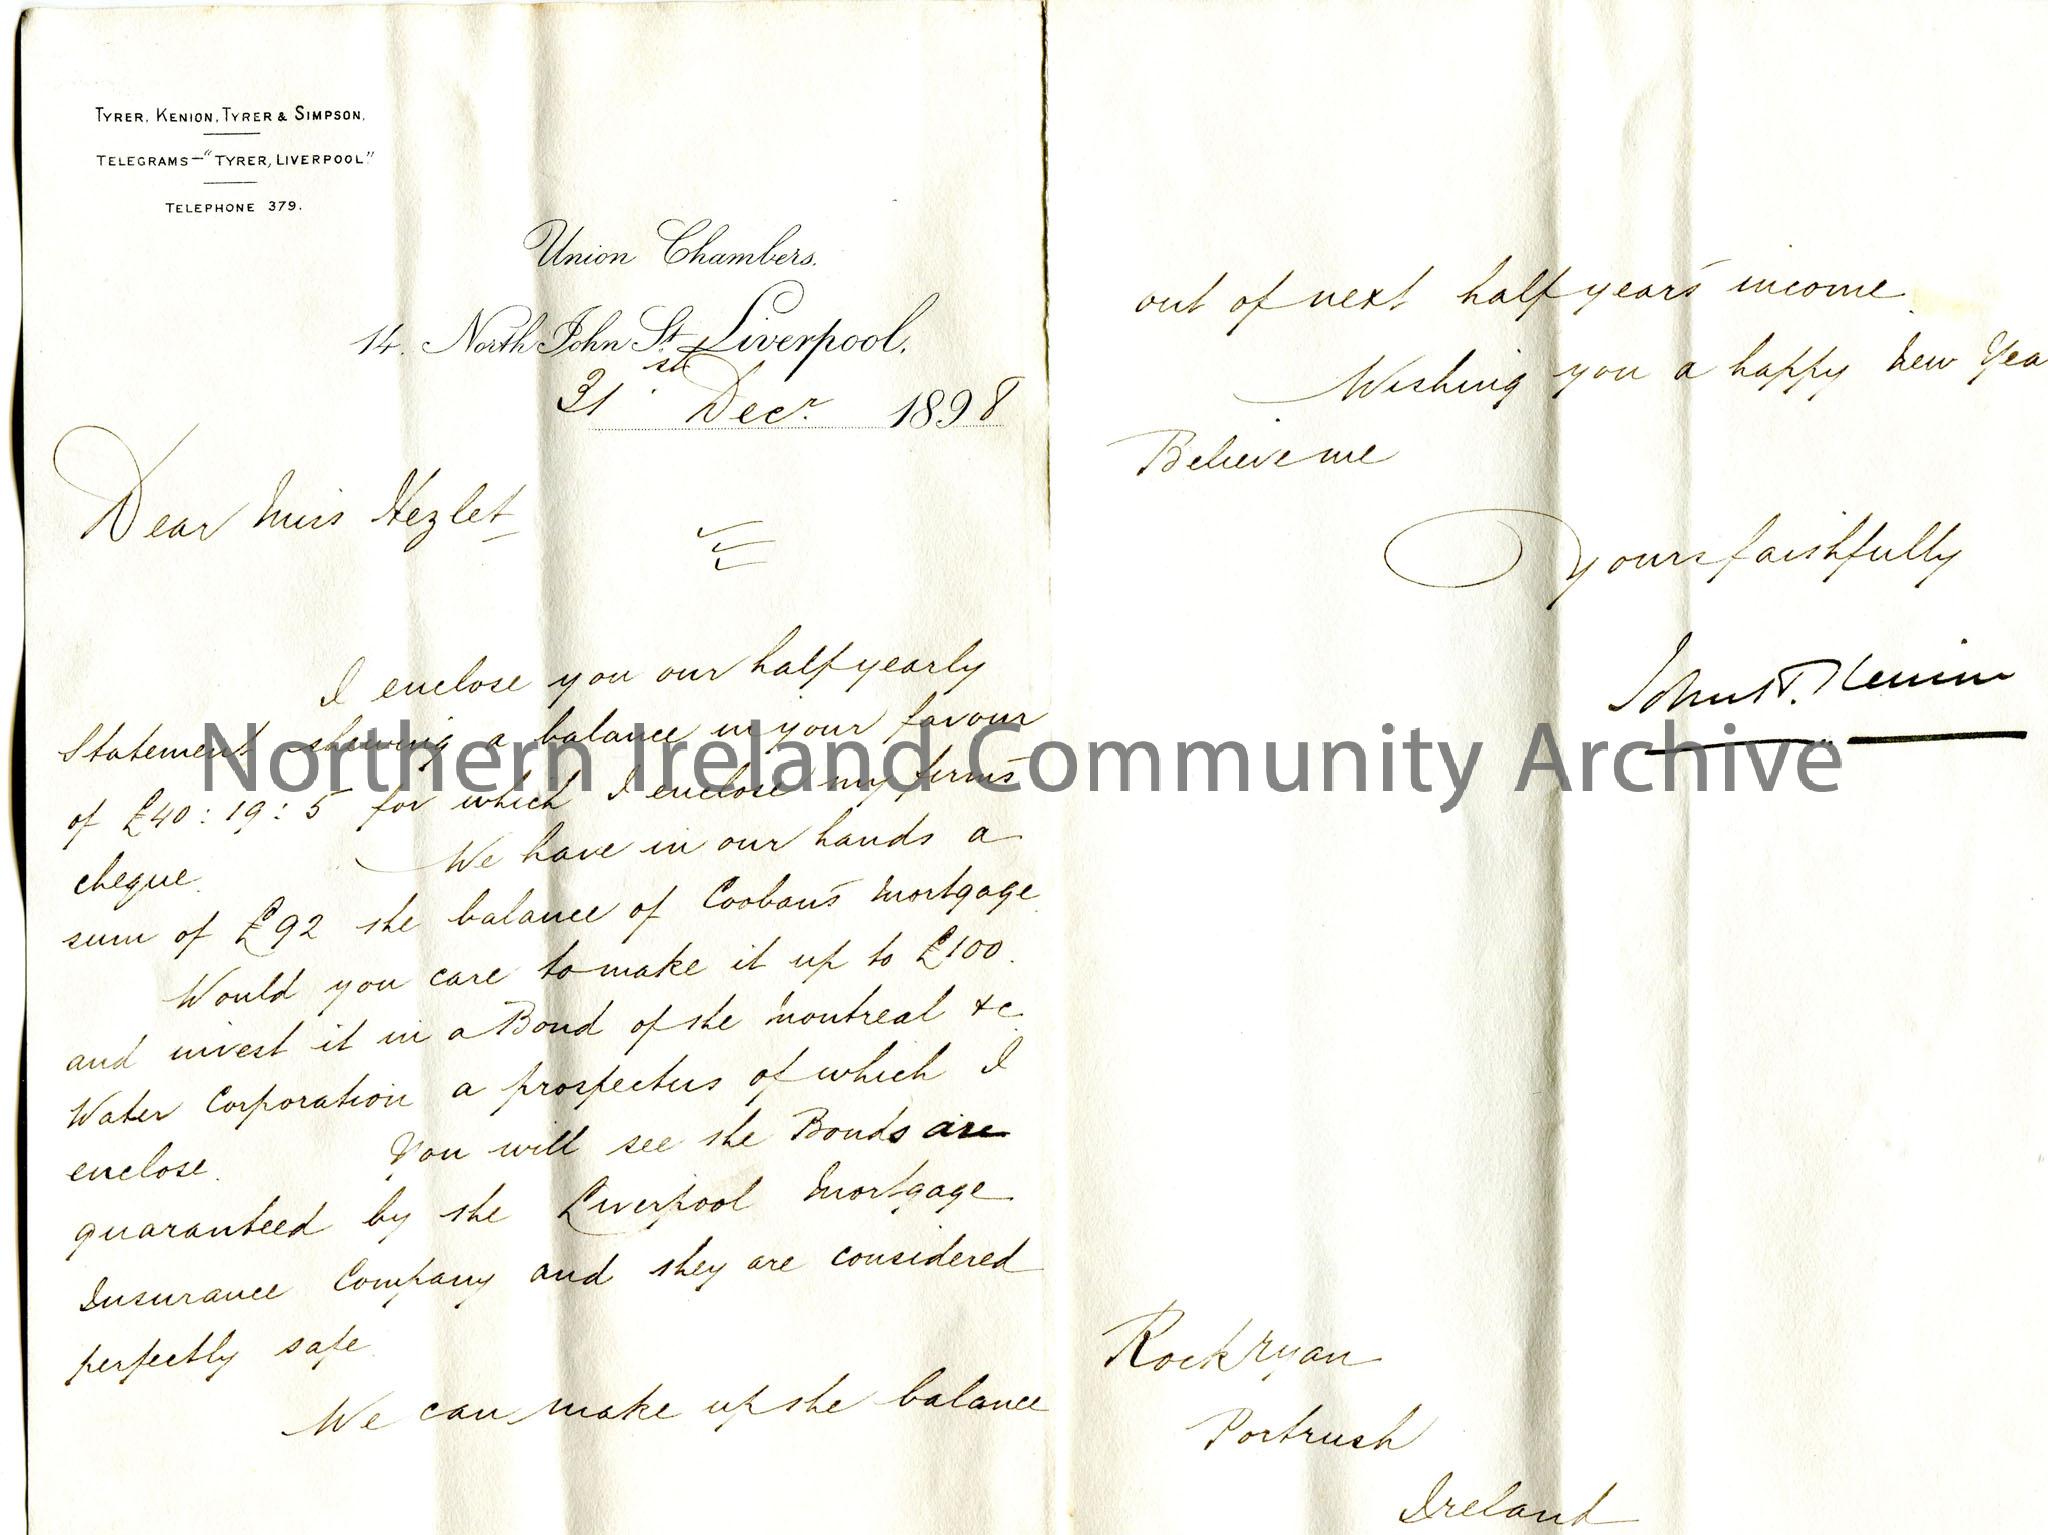 TYRER, KENION, TYRER & SIMPSON.
TELEGRAMS—"TYRER, LIVERPOOL."
TELEPHONE 379.
Union Chambers.
14. North John St. Liverpool.
31st Decr. 1898
Dear Miss Hezlet
I enclose you our half yearly
Statement shewing a balance in your favour
of £40:19:5 for which I enclose my firms
cheque. We have in our hands a
sum of £92 the balance of Cooban's Mortgage
Would you care to make it up to £100.
and invest it in a Bond of the Montreal &c
Water Corporation a prospectus of which I
enclose. You will see the Bonds are
guaranteed by the Liverpool Mortgage
Insurance Company and they are considered
perfectly safe
We can make up the balance
out of next half year's income.
Wishing you a happy New Yea
Believe me
Yours faithfully
Kenion
Rock Ryan
Portrush
Ireland
Northern Ireland Community Archive